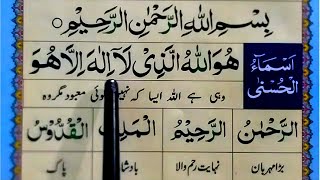 بِسْمِ اللهِ الرَّحْمٰنِ الرَّحِيْمِ
اَسْمَآءُ الْحُسْنٰى
هُوَ اللهُ الَّذِىْ لَآ اِلٰهَ اِلَّا هُوَ
وہی ہے اللہ ایسا کہ نہیں کوئی معبود مگر وہ
الرَّحْمٰنُ الرَّحِيْمُ الْمَلِكُ الْقُدُّوْسُ
بڑا مہربان نہایت رحم والا بادشاہ پاک